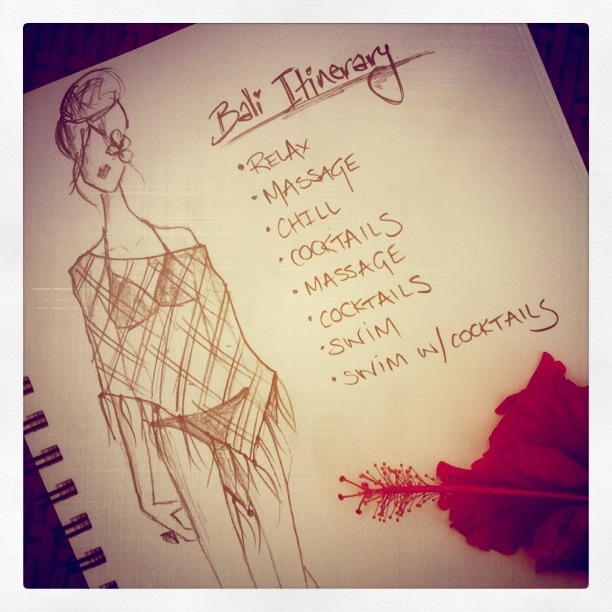 Bali Itinerary
• RELAX
• MASSAGE
• CHILL
• COCKTAILS
• MASSAGE
• COCKTAILS
• SWIM
• SWIM W/ COCKTAILS